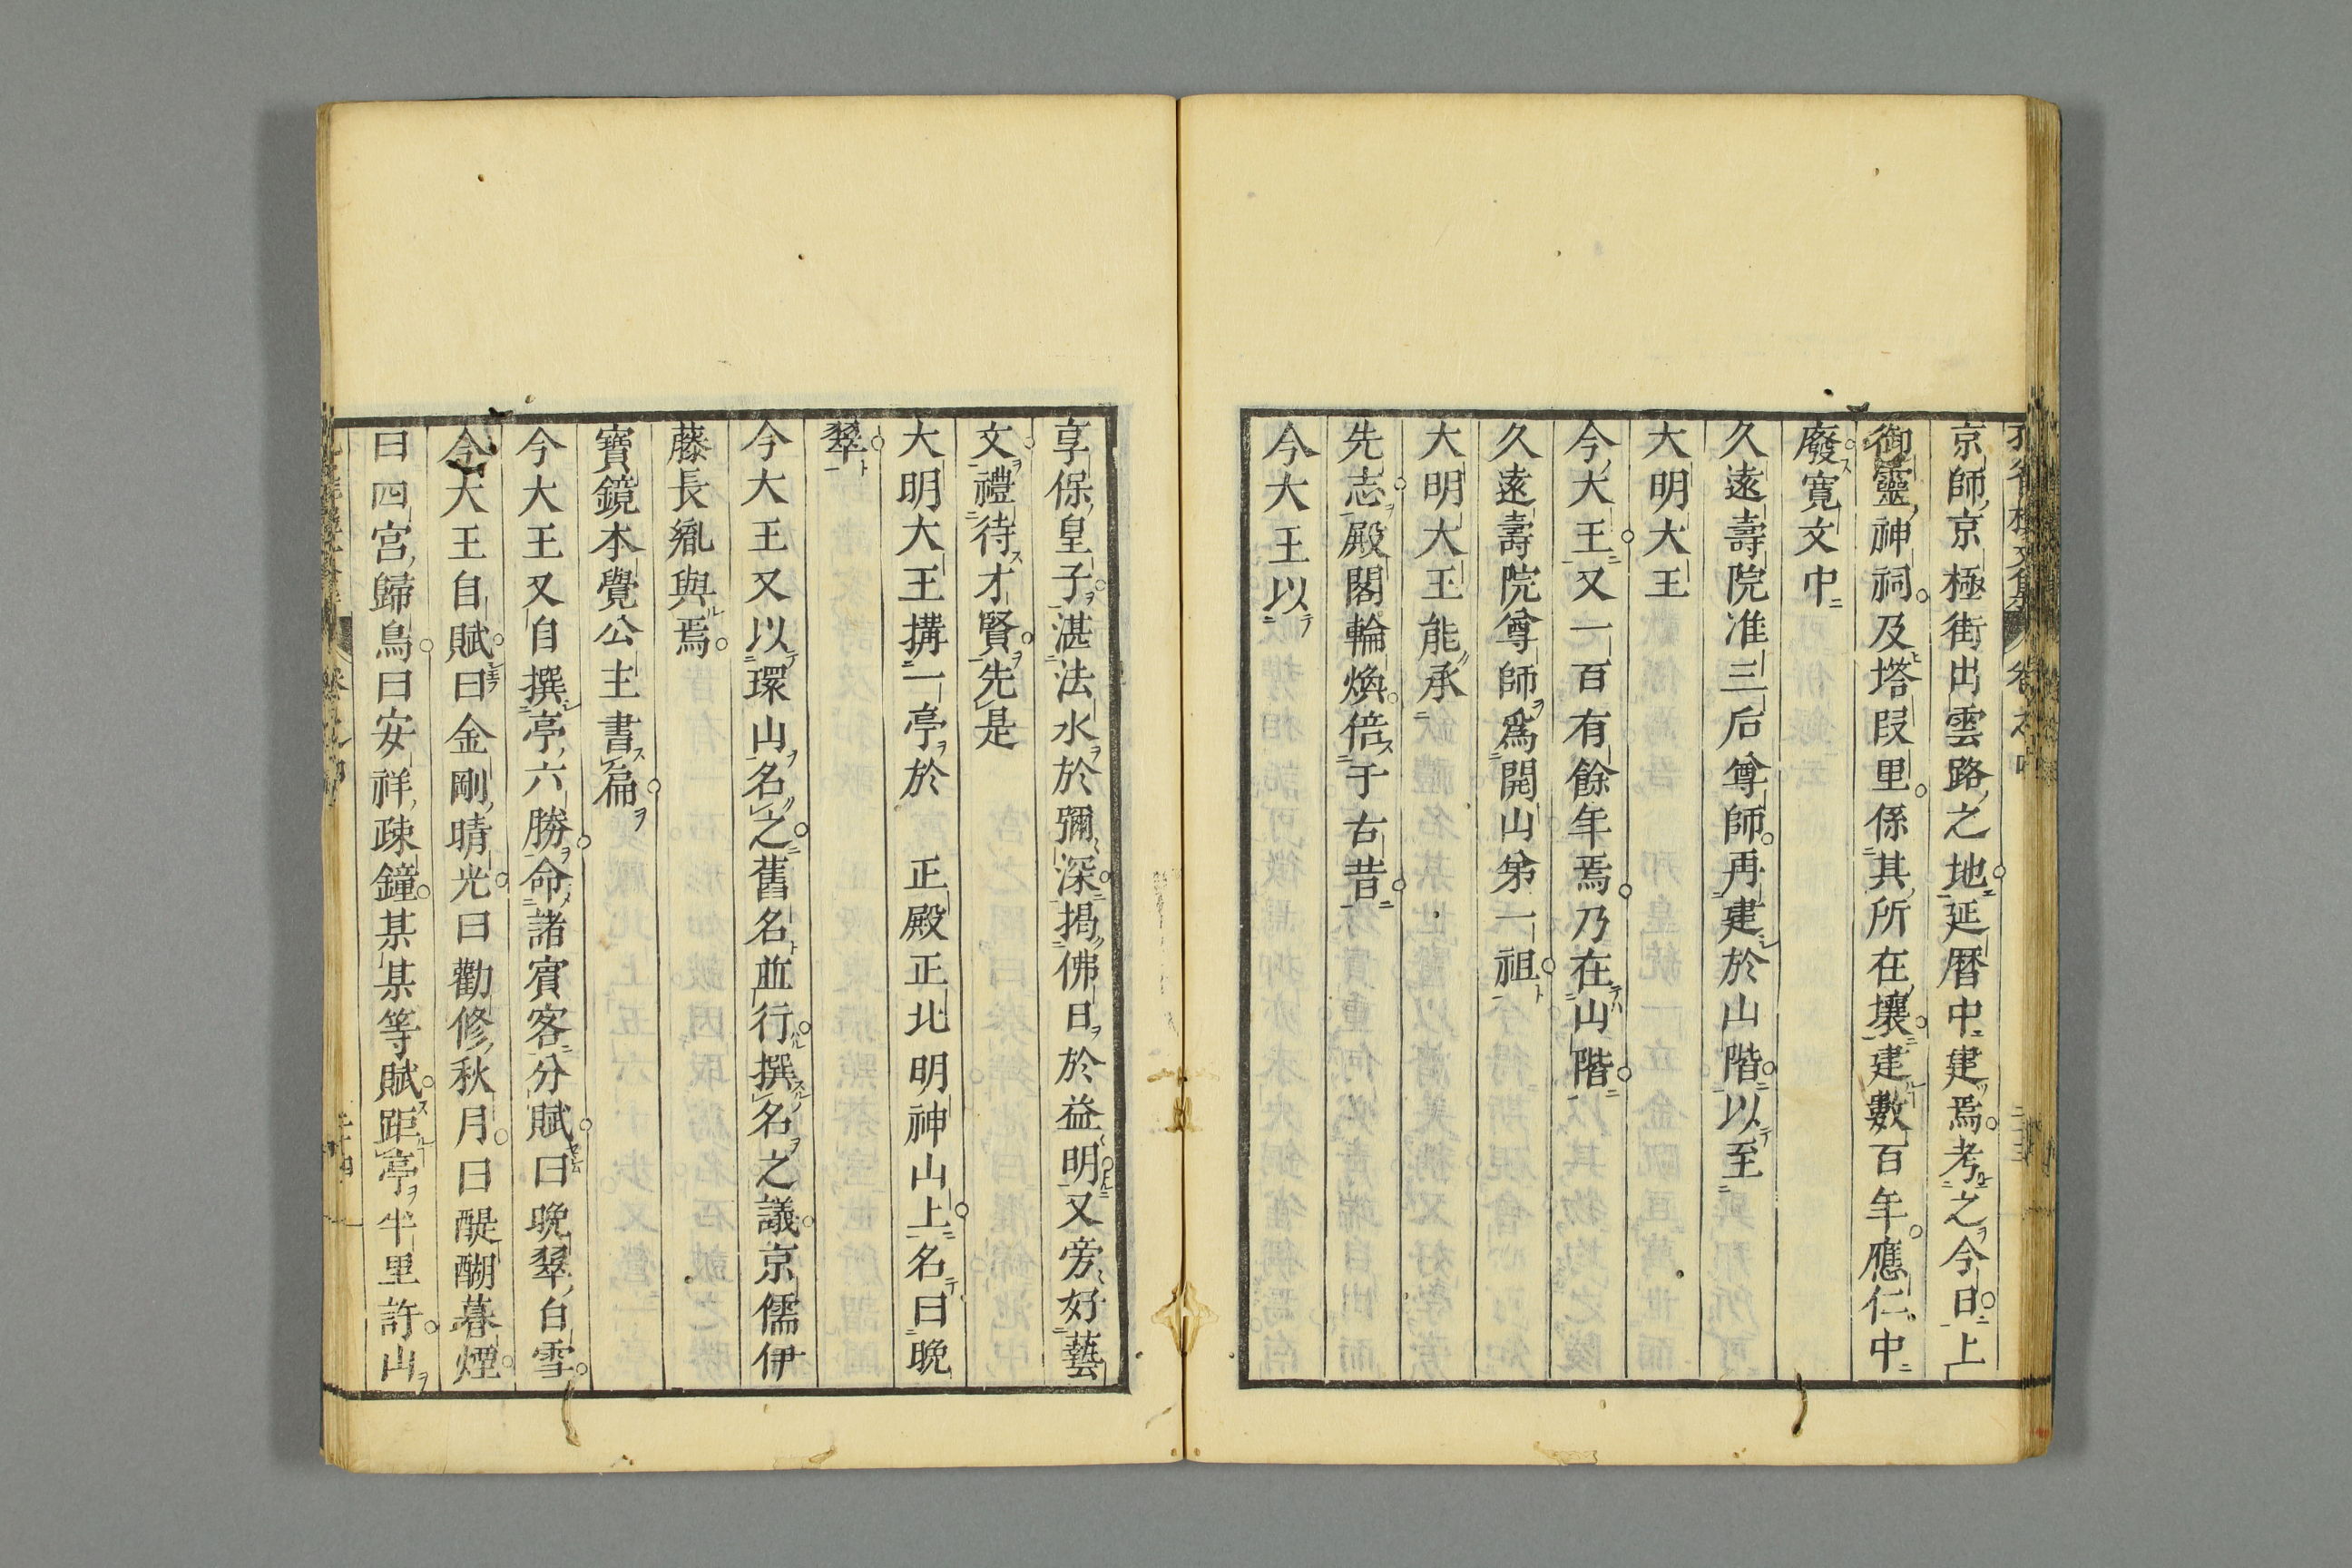 京師京極街出雲路之地延曆中建焉考之今日上
御靈神祠及塔段里係其所在壤建數百年應仁中
廢寛文中
久遠壽院准三后尊師再建於山階以至
大明大王
今大王又一百有餘年焉乃在山階
久遠壽院尊師爲開山第一祖
大明大王能承
先志殿閣輪煥倍于右昔
今大王以
享保皇子湛法水於彌深揭佛日於益明又旁好藝
文禮待才賢先是
大明大王搆一亭於　正殿正北明神山上名曰晚
翠
今大王又以環山名之舊名並行撰名之議京儒伊
藤長胤與焉
寶鏡本覺公主書扁
今大王又自撰亭六勝命諸賓客分賦曰晚翠白雪
今大王自賦曰金剛晴光曰勸修秋月曰醍醐暮煙
曰四宮歸鳥曰安祥疎鐘某某等賦距亭半里許山